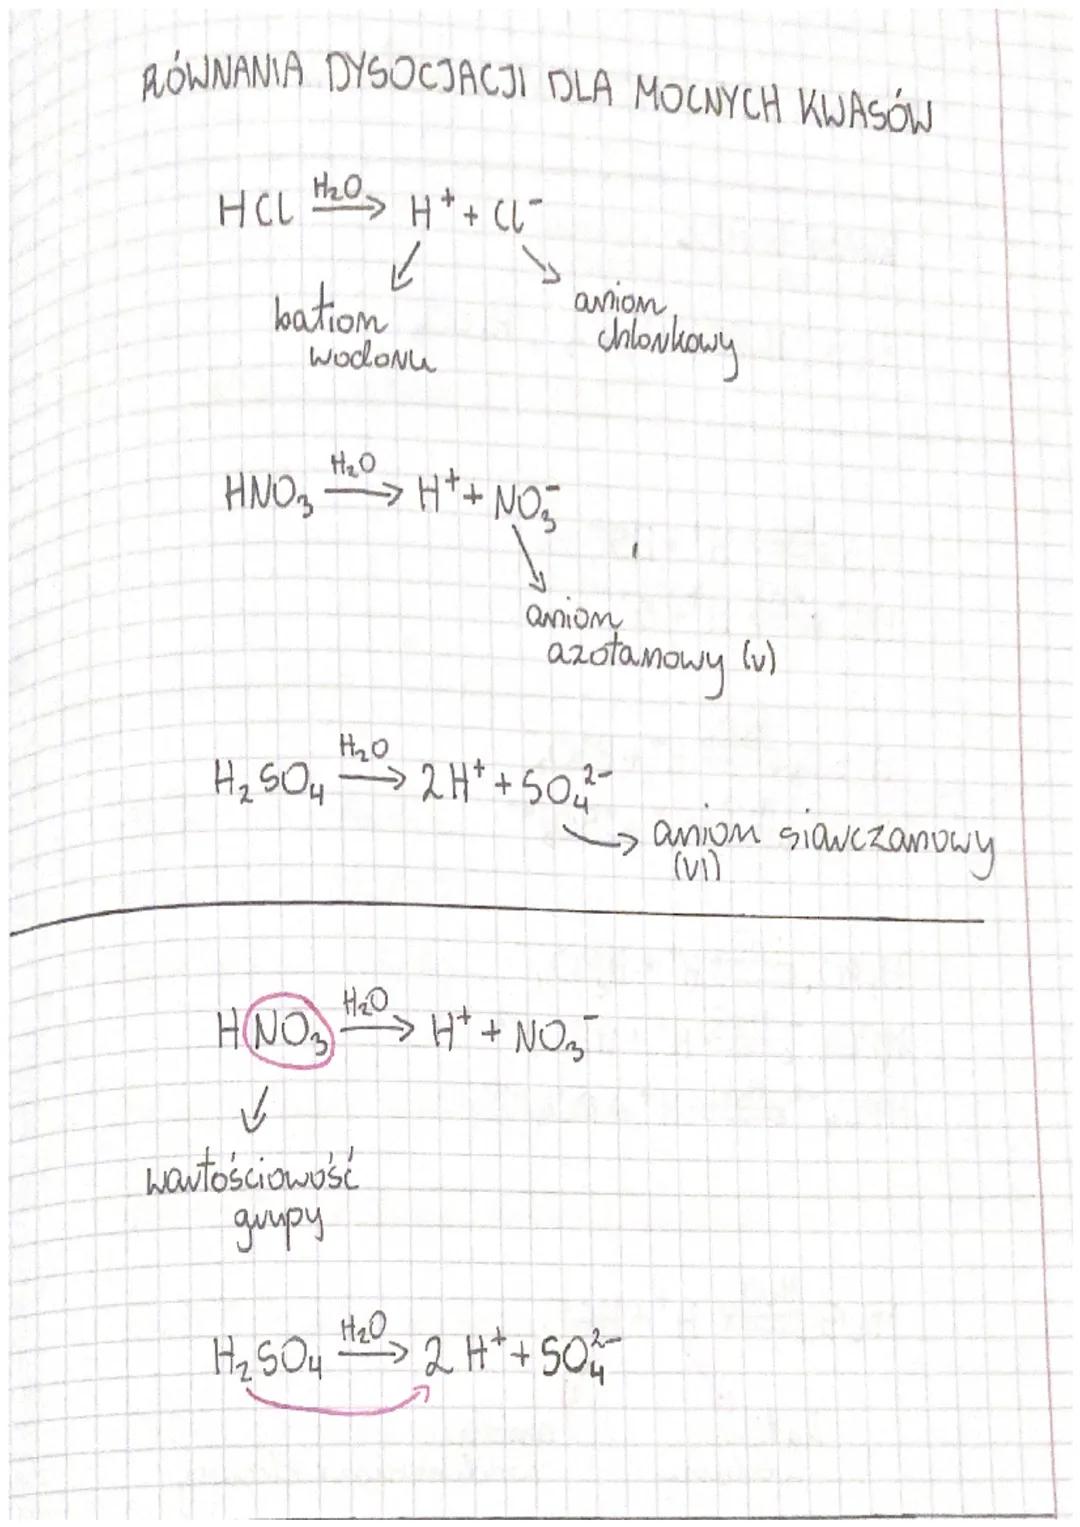 RÓWNANIA DYSOCJACJI DLA MOCNYCH KWASÓW
HCl H₂O→ H⁺ + Cl⁻
kation
wodoru
anion
chlorkowy
HNO₃ H₂O→ H⁺ + NO₃⁻
anion
azotanowy (v)
H₂SO₄ H₂O→ 2H⁺ + SO₄²⁻
anion siarczanowy
(VI)
HNO₃ H₂O→ H⁺ + NO₃⁻
wartościowość
grupy
H₂SO₄ H₂O→ 2 H⁺ + SO₄²⁻